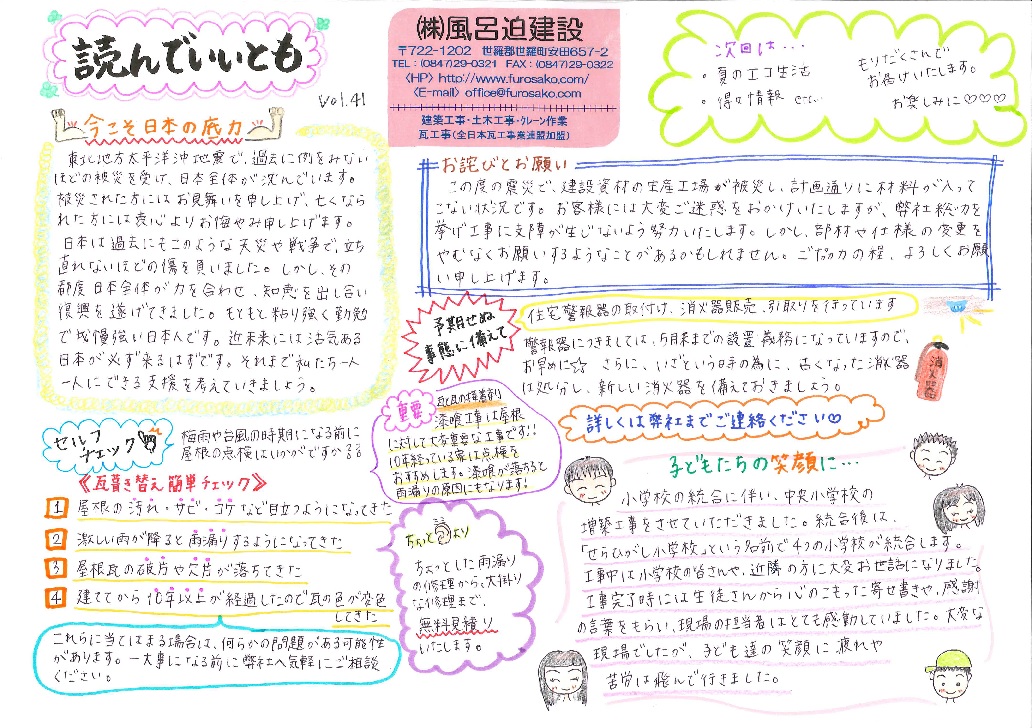 読んでいいとも
Vol.41
㈱風呂迫建設
〒722-1202 世羅郡世羅町安田657-2
TEL:(0847)29-0321 FAX:(0847)29-0322
〈HP〉http://www.furosako.com/
〈E-mail〉office@furosako.com
建築工事・土木工事・クレーン作業
瓦工事(全日本瓦工事業連盟加盟)
次回は・・・
・夏のエコ生活
・得々情報 etc…
もりだくさんで
お届けいたします。
お楽しみに♡♡♡
今こそ日本の底力
東北地方太平洋沖地震で、過去に例をみない
ほどの被災を受け、日本全体が沈んでいます。
被災された方にはお見舞いを申し上げ、亡くなら
れた方には衷心よりお悔やみ申し上げます。
日本は過去にもこのような天災や戦争で、立ち
直れないほどの傷を負いました。しかし、その
都度日本全体が力を合わせ、知恵を出し合い
復興を遂げてきました。もともと粘り強く勤勉
で我慢強い日本人です。近未来には活気ある
日本が必ず来るはずです。それまで私たち一人
一人にできる支援を考えていきましょう。
お詫びとお願い
この度の震災で、建設資材の生産工場が被災し、計画通りに材料が入って
こない状況です。お客様には大変ご迷惑をおかけいたしますが、弊社総力を
挙げ工事に支障が生じないよう努力いたします。しかし、部材や仕様の変更を
やむなくお願いするようなことがあるかもしれません。ご協力の程、よろしくお願
い申し上げます。
予期せぬ
事態に備えて
住宅警報器の取付け、消火器販売、引取りを行っています
警報器につきましては、5月末までの設置義務になっていますので、
お早めに☆ さらに、いざという時の為に、古くなった消火器
は処分し、新しい消火器を備えておきましょう。
消火器
詳しくは弊社までご連絡ください♡
重要
瓦の接着剤
漆喰工事は屋根
に対して大変重要な工事です!!
10年経っている家は点検を
おすすめします。漆喰が落ちると
雨漏りの原因にもなります!
セルフ
チェック
梅雨や台風の時期になる前に
屋根の点検はいかがですか
《瓦葺き替え簡単チェック》
1 屋根の汚れ・サビ・コケなど目立つようになってきた
2 激しい雨が降ると雨漏りするようになってきた
3 屋根瓦の破片や欠片が落ちてきた
4 建ててから10年以上が経過したので瓦の色が変色
してきた
これらに当てはまる場合は、何らかの問題がある可能性
があります。一大事になる前に弊社へ気軽にご相談
ください。
ちょっと
より
ちょっとした雨漏り
の修理から、大掛り
な修理まで、
無料見積り
いたします。
子どもたちの笑顔に…
小学校の統合に伴い、中央小学校の
増築工事をさせていただきました。統合後は、
「せらひがし小学校」という名前で4つの小学校が統合します。
工事中は小学校の皆さんや、近隣の方に大変お世話になりました。
工事完了時には生徒さんから心のこもった寄せ書きや、感謝
の言葉をもらい、現場の担当者はとても感動していました。大変な
現場でしたが、子ども達の笑顔に疲れや
苦労は飛んで行きました。